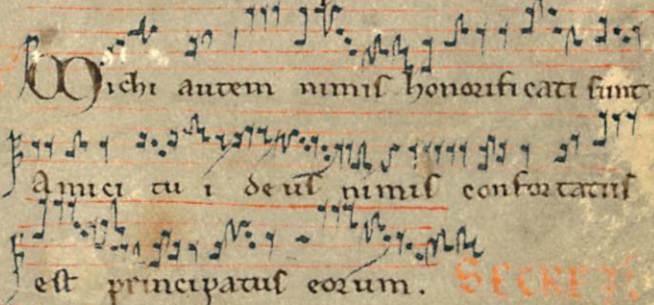 Michi autem nimis honorificati sunt
Amici tu i deus nimis confortatus
est principatus eorum. SECRET